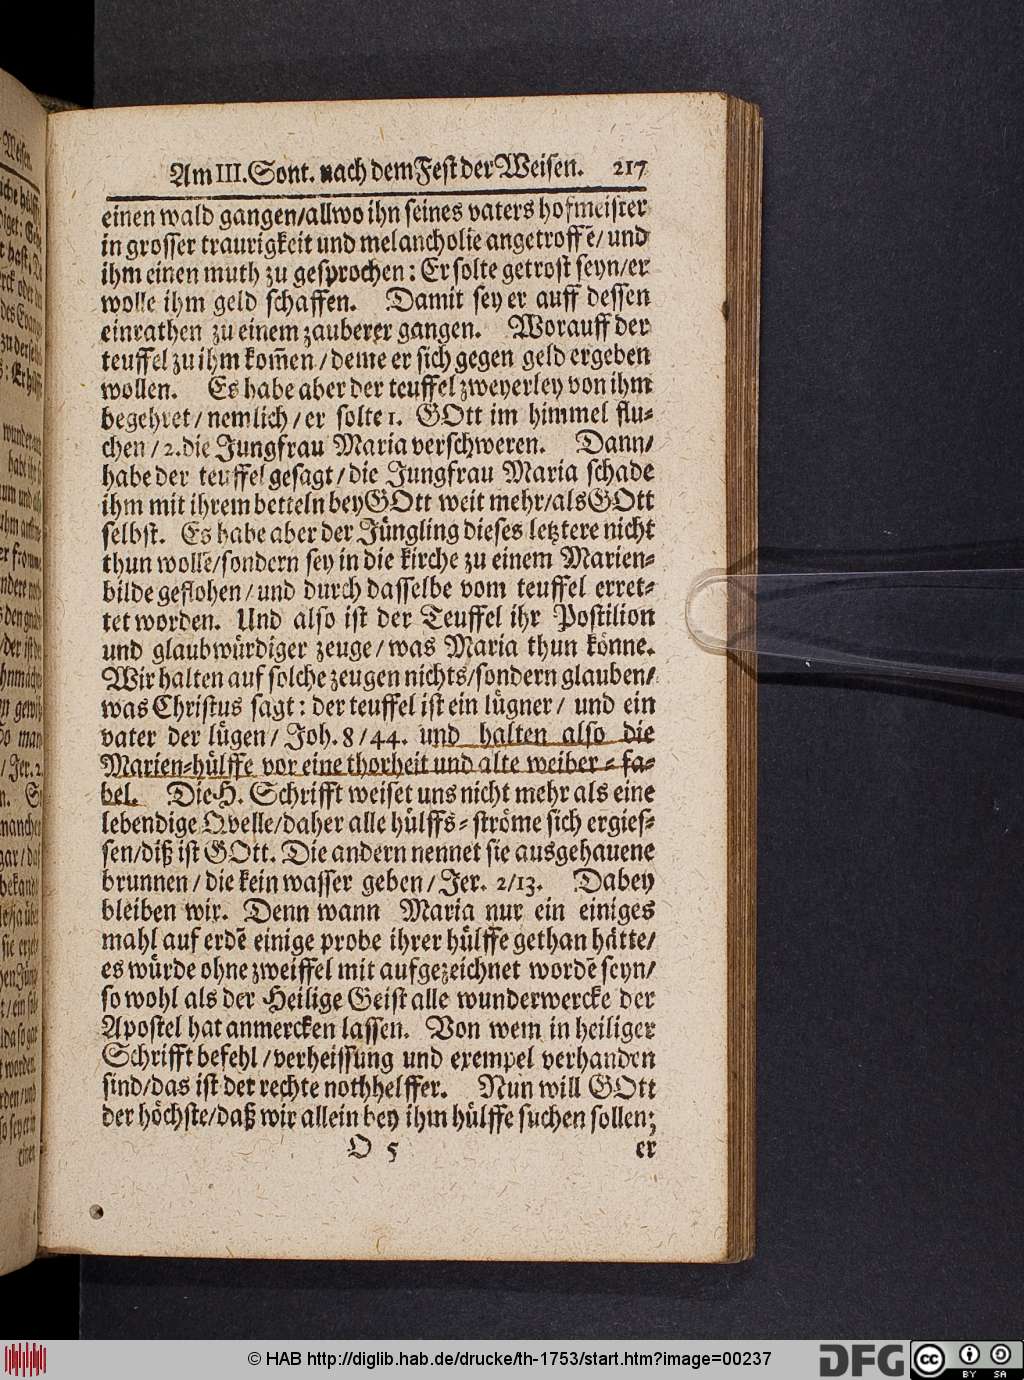 Am III. Sont. nach dem Fest der Weisen. 217
einen wald gangen/allwo ihn seines vaters hofmeister
in grosser traurigkeit und melancholie angetroffē/ und
ihm einen muth zu gesprochen: Er solte getrost seyn/er
wolle ihm geld schaffen. Damit sey er auff dessen
einrathen zu einem zauberer gangen. Worauff der
teuffel zu ihm kom̄en/deme er sich gegen geld ergeben
wollen. Es habe aber der teuffel zweyerley von ihm
begehret/ nemlich/ er solte 1. GOtt im himmel flu-
chen/ 2. die Jungfrau Maria verschweren. Dann/
habe der teuffel gesagt/ die Jungfrau Maria schade
ihm mit ihrem betteln bey GOtt weit mehr/als GOtt
selbst. Es habe aber der Jüngling dieses letztere nicht
thun wollē/sondern sey in die kirche zu einem Marien-
bilde geflohen/ und durch dasselbe vom teuffel erret-
tet worden. Und also ist der Teuffel ihr Postilion
und glaubwürdiger zeuge/ was Maria thun könne.
Wir halten auf solche zeugen nichts/sondern glauben/
was Christus sagt: der teuffel ist ein lügner/ und ein
vater der lügen/ Joh. 8/44. und halten also die
Marien-hülffe vor eine thorheit und alte weiber-fa-
bel. Die H. Schrifft weiset uns nicht mehr als eine
lebendige Qvelle/daher alle hülffs-ströme sich ergies-
sen/diß ist GOtt. Die andern nennet sie ausgehauene
brunnen/ die kein wasser geben/ Jer. 2/13. Dabey
bleiben wir. Denn wann Maria nur ein einiges
mahl auf erdē einige probe ihrer hülffe gethan hätte/
es würde ohne zweiffel mit aufgezeichnet wordē seyn/
so wohl als der Heilige Geist alle wunderwercke der
Apostel hat anmercken lassen. Von wem in heiliger
Schrifft befehl/ verheissung und exempel verhanden
sind/das ist der rechte nothhelffer. Nun will GOtt
der höchste/daß wir allein bey ihm hülffe suchen sollen;
O 5 er
© HAB http://diglib.hab.de/drucke/th-1753/start.htm?image=00237
DFG cc BY SA